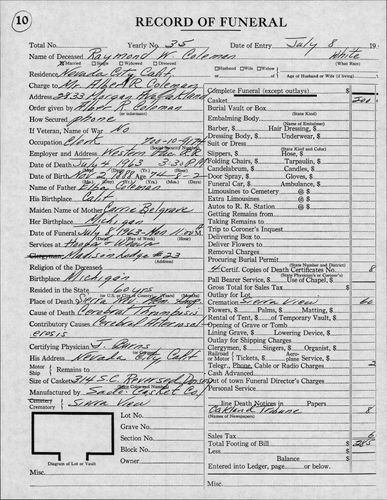 10
RECORD OF FUNERAL
Total No. Yearly No. 35 Date of Entry July 8 19
Name of Deceased Raymond W. Coleman White
Married Single Widowed Divorced Husband Wife Widow (What Race)
Residence Nevada City Calif of Age of Husband or Wife (if living)
Charge to Mr. Albert R. Coleman
Address 2833 Morgan Oakland
Order given by Albert R. Coleman
How Secured phone
If Veteran, Name of War No
Occupation Clerk 700-10-9174
Employer and Address Western Pac. R.R.
Date of Death July 4 1963 3:30 P.M.
Date of Birth Nov 2 1888 Age 74-8-2
Name of Father Coleman
His Birthplace Calif
Maiden Name of Mother Carrie Belgrave
Her Birthplace Michigan
Date of Funeral July 8, 1963 - Mon 11:00 A
Services at Hooper & Weaver
Clergyman Madison Lodge #23
Religion of the Deceased
Birthplace Michigan
Resided in the State 60 yrs
Place of Death Sierra Nev. Mem. Hosp.
Cause of Death Cerebral Thrombosis
Contributory Causes Cerebral Arteriosclerosis
Certifying Physician J. Burns
His Address Nevada City Calif
Motor Ship Remains to
Size of Casket 314 S.C.
Manufactured by Casket Co.
Cemetery
Crematory Sierra View
Lot No.
Grave No.
Section No.
Block No.
Owner
Diagram of Lot or Vault
Misc.
Complete Funeral (except outlays)
Casket 200
Burial Vault or Box
(State Kind)
Embalming Body
(Name of Embalmer)
Barber, Hair Dressing,
Dressing Body, Underwear,
Suit or Dress
(State Kind and Color)
Slippers, Hose,
Folding Chairs, Tarpaulin,
Candelabrum, Candles,
Door Spray, Gloves,
Funeral Car, Ambulance,
Limousines to Cemetery @
Extra Limousines @
Autos to R. R. Station @
Getting Remains from
Taking Remains to
Trip to Coroner's Inquest
Delivering Box to
Deliver Flowers to
Removal Charges
Procuring Burial Permit
(State Number and District)
4 Certif. Copies of Death Certificate No. 8
Pall Bearer Service, Use of Chapel,
Gross Total for Sales Tax
Outlay for Lot
Cremation Sierra View 60
Flowers, Palms, Matting,
Rental of Tent, of Temporary Vault,
Opening of Grave or Tomb
Lining Grave, Lowering Device,
Outlay for Shipping Charges
Clergymen, Singers, Organist,
Railroad or Motor Tickets, Aeroplane Service,
Telegr., Phone, Cable or Radio Charges 2
Cash Advanced
Out of town Funeral Director's Charges
Personal Service
line Death Notices in Papers
Oakland Tribune 8
(Names of Newspapers)
Sales Tax
Total Footing of Bill 285
Less
Balance
Entered into Ledger, page or below.
Misc.